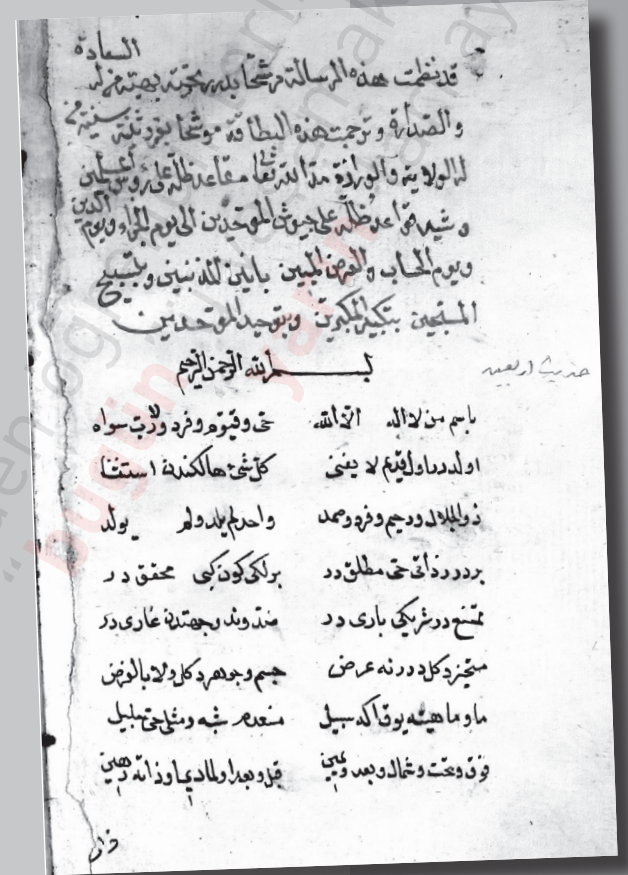 السعادة
قد نظمت هذه الرسالة مرشحا بدرر تحية بهية من له
والصدارة وترجمت هذه البطاقة موشحا بفرد ثنية سنية من
له الولاية والوزارة مد الله تعالى مقاعد ظله على رؤس العالمين
وشيد قواعد ظله على جيوش الموحدين الى يوم الجزاء ويوم الدين
ويوم الحساب والعرض المبين بانين المذنبين وتسبيح
المسبحين بتكبير المكبرين وبتوحيد الموحدين
بسم الله الرحمن الرحيم
حديث اربعين
باسم من لا اله الا الله حى وقيوم وفرد ولا رب سواه
اولدر اول قديم لا يفنى كل شئ هالكندن استثنا
ذو الجلال ورحيم وفرد وصمد واحد لم يلد ولم يولد
بردرر ذاتى حى مطلق در برلكى كون كبى محقق در
ممتنع در شريكى بارى در ضد وند وجهتدن عارى در
متحيز دكل در نه عرض جسم وجوهر دكل ولا بالعرض
ما وماهيته يوق اكه سبيل منعدم شبه ومثلى حق جليل
فوق وتحت وشمال وبعد ويمين قبل وبعد اولمادى اوذاته رهين
ذات